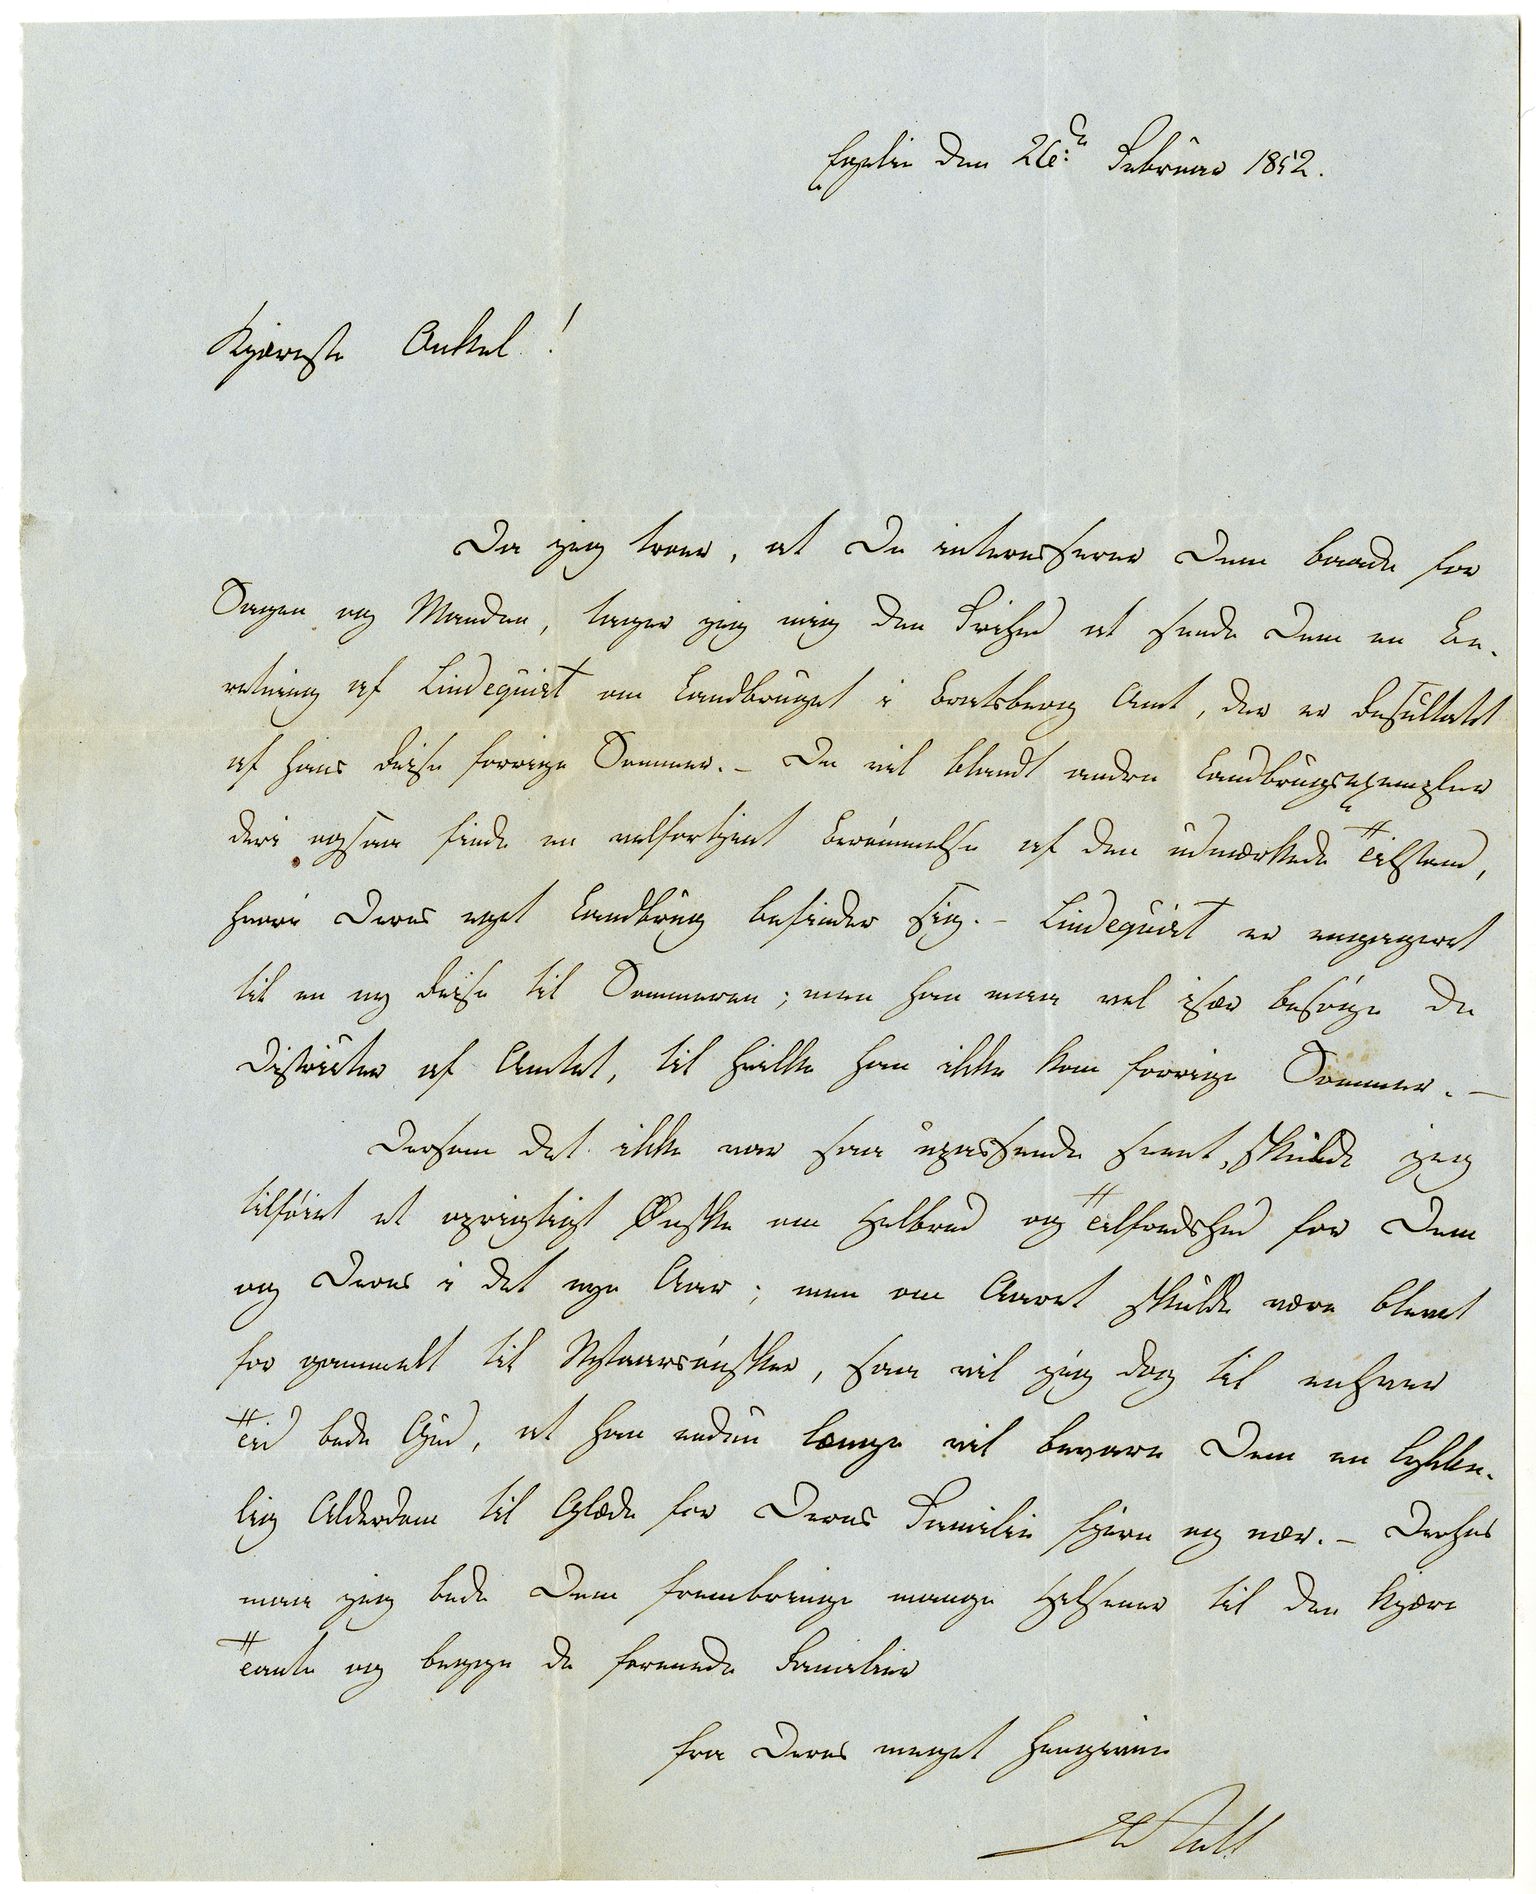 Fogelie den 26:de Februar 1852.
Kjæreste Onkel!
Da jeg troer, at De interesserer Dem baade for
Sagen og Manden, tager jeg mig den Frihed at sende Dem en Be-
retning af Lindequist om Landbruget i Bratsberg Amt, der er Resultatet
af hans Reise forrige Sommer. – De vil blandt andre Landbrugsexempler
deri ogsaa finde en velfortjent Berömmelse af den udmærkede Tilstand,
hvori Deres eget Landbrug befinder sig. – Lindequist er engageret
til en ny Reise til Sommeren; men han maa vel især besöge de
Districter af Amtet, til hvilke han ikke kom forrige Sommer. –
Dersom det ikke var saa upassende seent, skulde jeg
tilföiet et oprigtigt Önske om Helbred og Tilfredshed for Dem
og Deres i det nye Aar; men om Aaret skulde være blevet
for gammelt til Nytaarsönsker, saa vil jeg dog til enhver
Tid bede Gud, at han endnu længe vil bevare Dem en lykke-
lig Alderdom til Glæde for Deres Familie fjern og nær. – Derhos
maa jeg bede Dem frembringe mange Hilsener til den kjære
Tante og begge de forenede Familier
fra Deres meget hengivne